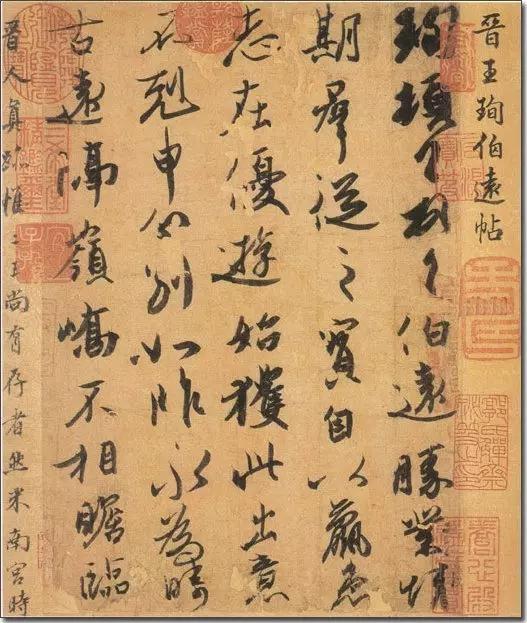 晉王珣伯遠帖
珣頓首頓首伯遠勝業情
期羣從之寶自以羸患
志在優遊始獲此出意
不剋申分別如昨永為疇
古遠隔嶺嶠不相瞻臨
晉人真跡惟二王尚有存者然米南宮時